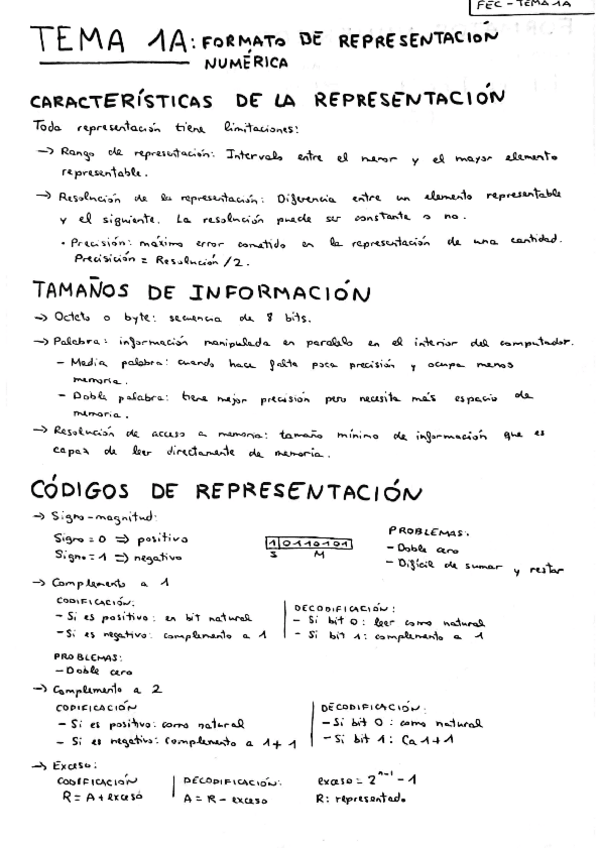 FEC - TEMA 1A
TEMA 1A: FORMATO DE REPRESENTACIÓN
NUMÉRICA
CARACTERÍSTICAS DE LA REPRESENTACIÓN
Toda representación tiene limitaciones:
-> Rango de representación: Intervalo entre el menor y el mayor elemento
representable.
-> Resolución de la representación: Diferencia entre un elemento representable
y el siguiente. La resolución puede ser constante o no.
· Precisión: máximo error cometido en la representación de una cantidad.
Precisición = Resolución / 2.
TAMAÑOS DE INFORMACIÓN
-> Octeto o byte: secuencia de 8 bits.
-> Palabra: información manipulada en paralelo en el interior del computador.
- Media palabra: cuando hace falta poca precisión y ocupa menos
memoria.
- Doble palabra: tiene mejor precisión pero necesita más espacio de
memoria.
-> Resolución de acceso a memoria: tamaño mínimo de información que es
capaz de leer directamente de memoria.
CÓDIGOS DE REPRESENTACIÓN
-> Signo-magnitud:
Signo = 0 => positivo
Signo = 1 => negativo
1 0110101
S M
PROBLEMAS:
- Doble cero
- Difícil de sumar y restar
-> Complemento a 1
CODIFICACIÓN:
- Si es positivo: en bit natural
- Si es negativo: complemento a 1
DECODIFICACIÓN:
- Si bit 0: leer como natural
- Si bit 1: complemento a 1
PROBLEMAS:
- Doble cero
-> Complemento a 2
CODIFICACIÓN
- Si es positivo: como natural
- Si es negativo: Complemento a 1 + 1
DECODIFICACIÓN:
- Si bit 0: como natural
- Si bit 1: Ca 1 + 1
-> Exceso:
CODIFICACIÓN
R = A + exceso
DECODIFICACIÓN:
A = R - exceso
exceso = 2^(n-1) - 1
R: representado